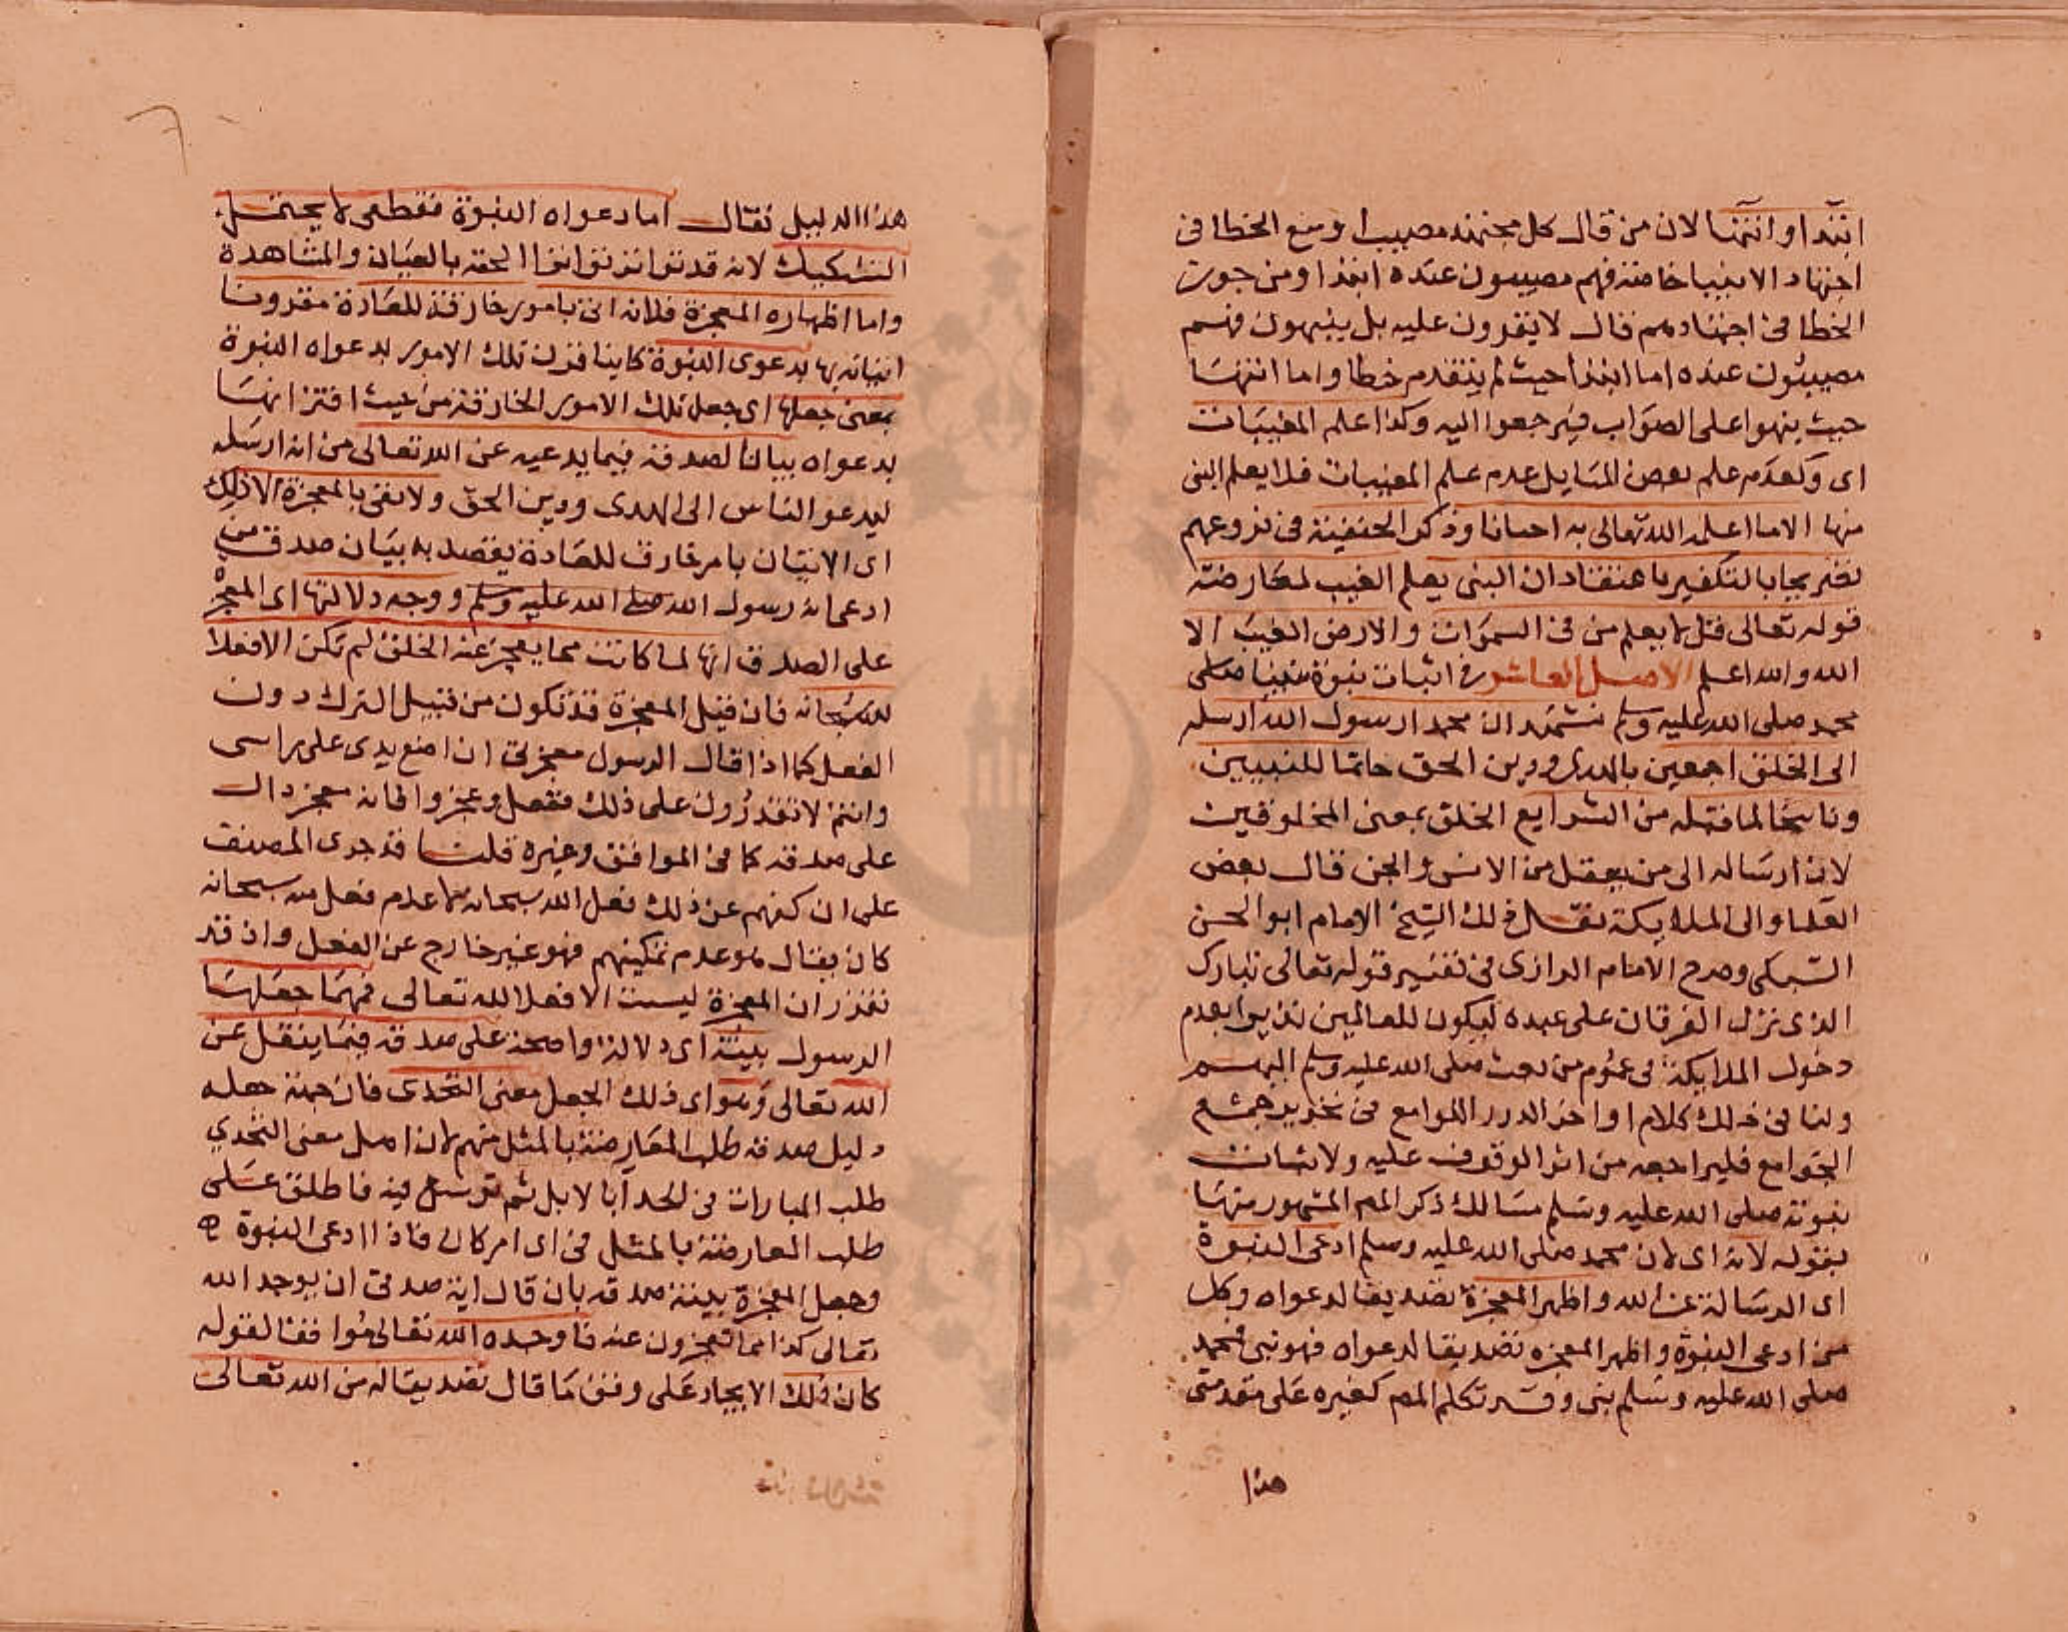 ابتدا وانتها لان من قال كل مجتهد مصيب او منع الخطا فى
اجتهاد الانبيا خاصة فهم مصيبون عنده ابتدا ومن جوز
الخطا فى اجتهادهم قال لا يقرون عليه بل ينبهون فهم
مصيبون عنده اما ابتدا حيث لم يتقدم خطا واما انتها
حيث ينبهوا على الصواب فيرجعوا اليه وكذا علم المغيبات
اى وكعدم علم بعض المسايل عدم علم المغيبات فلا يعلم النبى
منها الا ما اعلمه الله تعالى به احيانا وذكر الحنفية فى فروعهم
تصريحا بالتكفير باعتقاد ان النبى يعلم الغيب لمعارضة
قوله تعالى قل لا يعلم من فى السموات والارض الغيب الا
الله والله اعلم الاصل العاشر فى اثبات نبوة نبينا صلى
محمد صلى الله عليه وسلم نشهد ان محمدا رسول الله ارسله
الى الخلق اجمعين بالهدى ودين الحق خاتما للنبيين
وناسخا لما قبله من الشرايع الخلق بمعنى المخلوقين
لان ارساله الى من يعقل من الانس والجن قال بعض
العلما والى الملايكة نقل ذلك الشيخ الامام ابو الحسن
السبكى وصرح الامام الرازى فى تفسير قوله تعالى تبارك
الذى نزل الفرقان على عبده ليكون للعالمين نذيرا بعدم
دخول الملايكة فى عموم من بعث صلى الله عليه وسلم اليهم
ولنا فى ذلك كلام اواخر الدرر اللوامع فى تحرير جمع
الجوامع فليراجعه من اثر الوقوف عليه ولاثبات
نبوته صلى الله عليه وسلم مسالك ذكر المص المشهور منها
بقوله لانه اى لان محمد صلى الله عليه وسلم ادعى النبوة
اى الرسالة عن الله واظهر المعجزة تصديقا لدعواه وكل
من ادعى النبوة واظهر المعجزه تصديقا لدعواه فهو نبى فمحمد
صلى الله عليه وسلم نبى وقد تكلم المص كغيره على مقدمتى
هذا
هذا الدليل فقال اما دعواه النبوة فقطعى لا يحتمل
التشكيك لانه قد تواتر تواترا الحقه بالعيان والمشاهدة
واما اظهاره المعجزة فلانه اتى بامور خارقة للعادة مقرونا
اتيانه بها بدعوى النبوة كاينا قرن تلك الامور بدعواه النبوة
بمعنى جعلها اى جعل تلك الامور الخارقة من حيث اقترانها
بدعواه بيانا لصدقه فيما يدعيه عن الله تعالى من انه ارسله
ليدعو الناس الى الهدى ودين الحق ولا نعنى بالمعجزة الا ذلك
اى الاتيان بامر خارق للعادة يقصد به بيان صدق من
ادعى انه رسول الله صلى الله عليه وسلم ووجه دلالتها اى المعجزة
على الصدق انها لما كانت مما يعجز عنه الخلق لم تكن الا فعلا
لله سبحانه فان قيل المعجزة قد تكون من قبيل الترك دون
الفعل كما اذا قال الرسول معجزتى ان اضع يدى على راسى
وانتم لا تقدرون على ذلك ففعل وعجزوا فانه معجز دال
على صدقه كما فى المواقف وغيره قلنا قد جرى المصنف
على ان كفهم عن ذلك فعل الله سبحانه لا عدم فعل منه سبحانه
كان يقال هو عدم تمكينهم فهو غير خارج عن الفعل واذ قد
تقرر ان المعجزة ليست الا فعلا لله تعالى فمهما جعلها
الرسول بينة اى دلالة واضحة على صدقه فيما ينقل عن
الله تعالى وهو اى ذلك الجعل معنى التحدى فان جهة جعله
دليل صدقه طلب المعارضة بالمثل منهم لان اصل معنى التحدي
طلب المبارات فى الحداء بالابل ثم توسع فيه فاطلق على
طلب المعارضة بالمثل فى اى امر كان فاذا ادعى النبوة
وجعل المعجزة بينة صدقه بان قال اية صدقى ان يوجد الله
تعالى كذا مما تعجزون عنه فاوجده الله تعالى موافقا لقوله
كان ذلك الايجاد على وفق ما قال تصديقا له من الله تعالى